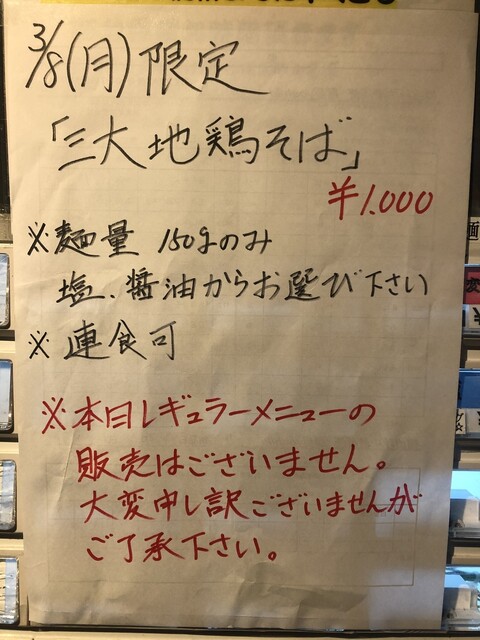 3/8(月)限定
「三大地鶏そば」
¥1.000
※麺量 150gのみ
塩、醤油からお選び下さい
※連食可
※本日レギュラーメニューの
販売はございません。
大変申し訳ございませんが
ご了承下さい。